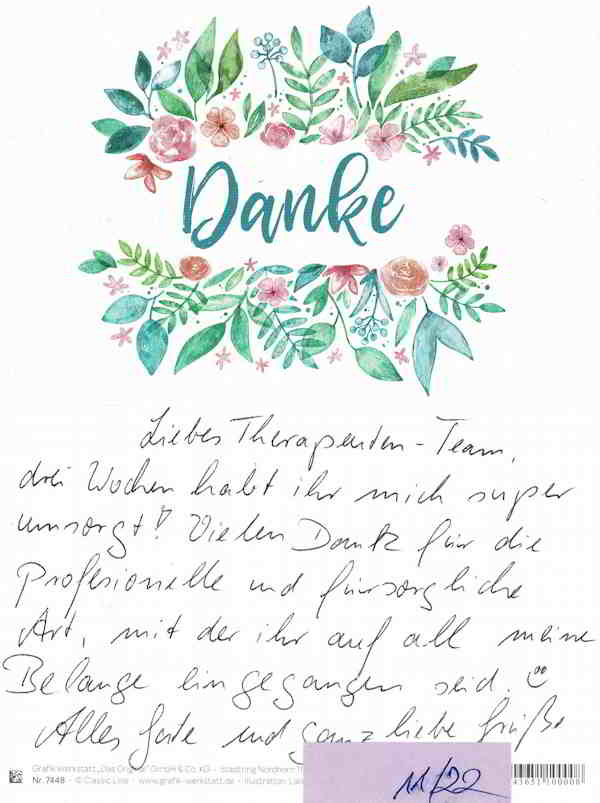 Danke
Liebes Therapeuten-Team,
drei Wochen habt ihr mich super
umsorgt! Vielen Dank für die
Profesionelle und fürsorgliche
Art, mit der ihr auf all meine
Belange eingegangen seid.
Alles Gute und ganz liebe Grüße
Grafik Werkstatt „Das Original“ GmbH & Co. KG · Stadtring Nordhorn
Nr. 7448 · © Classic Line · www.grafik-werkstatt.de · Illustration:
11/22